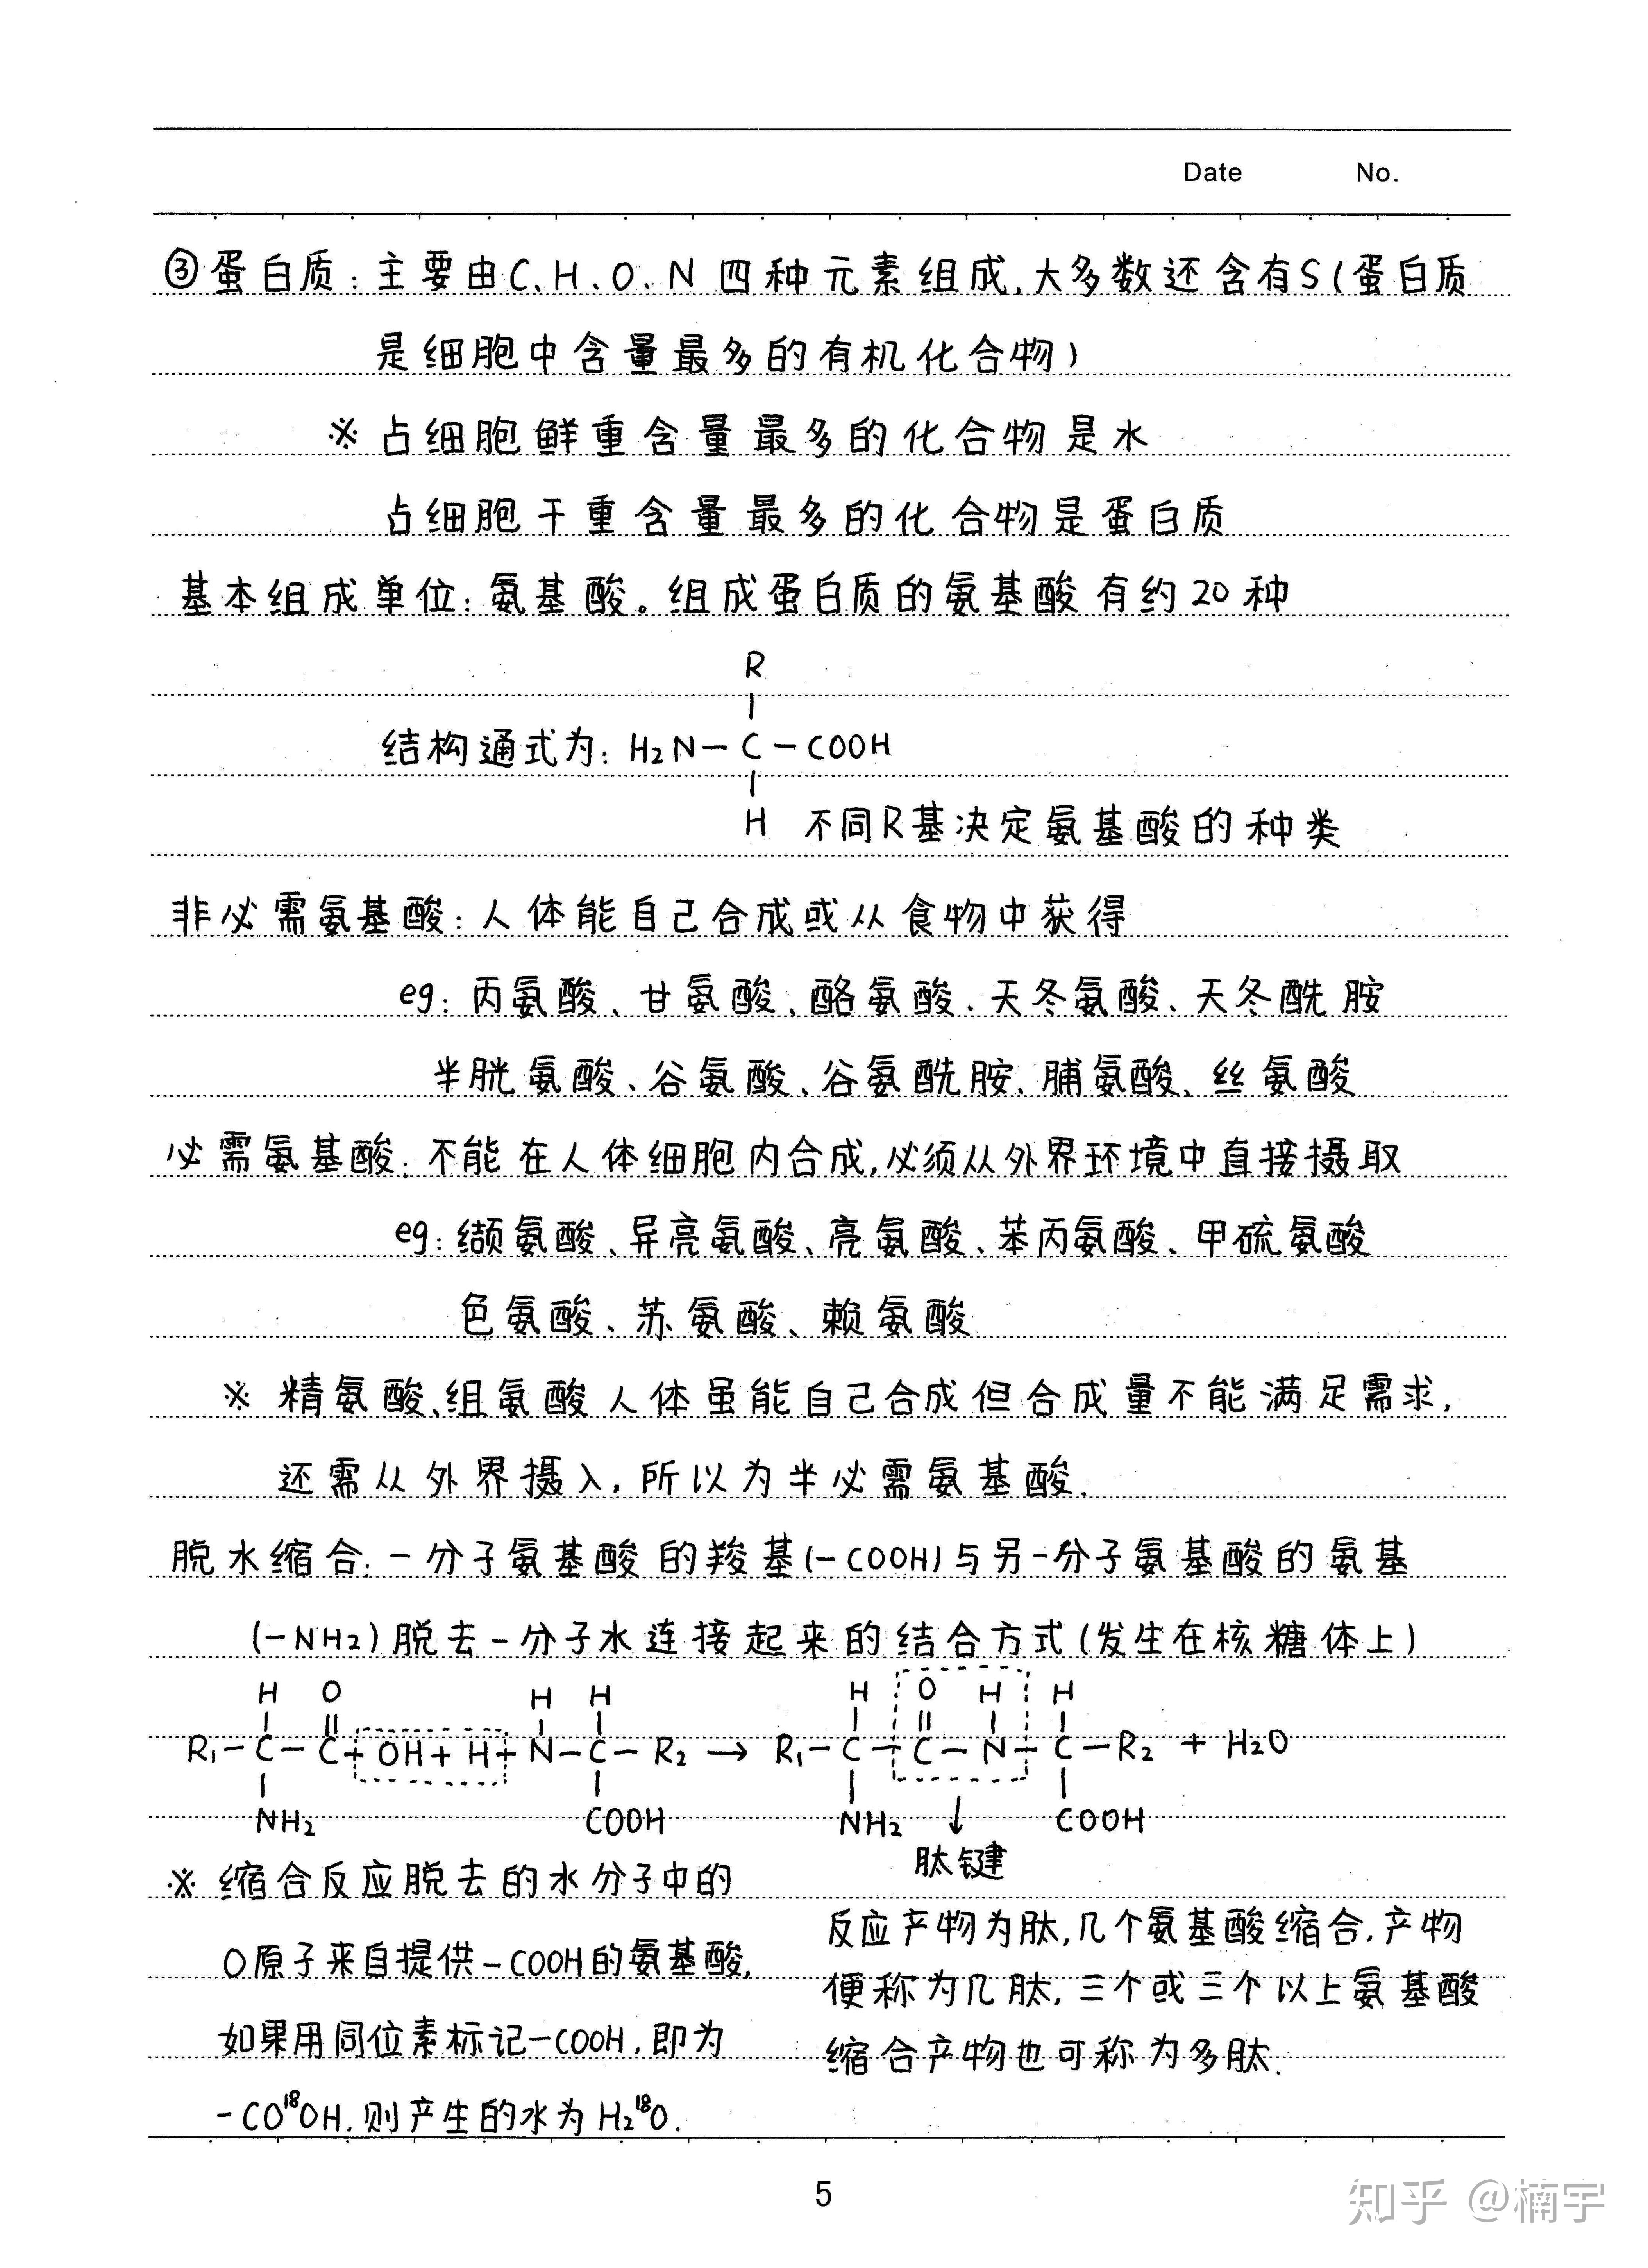 Date No.
③蛋白质：主要由C、H、O、N四种元素组成，大多数还含有S(蛋白质
是细胞中含量最多的有机化合物)
※占细胞鲜重含量最多的化合物是水
占细胞干重含量最多的化合物是蛋白质
基本组成单位：氨基酸。组成蛋白质的氨基酸有约20种
R
结构通式为：H₂N－C－COOH
H 不同R基决定氨基酸的种类
非必需氨基酸：人体能自己合成或从食物中获得
eg：丙氨酸、甘氨酸、酪氨酸、天冬氨酸、天冬酰胺
半胱氨酸、谷氨酸、谷氨酰胺、脯氨酸、丝氨酸
必需氨基酸：不能在人体细胞内合成，必须从外界环境中直接摄取
eg：缬氨酸、异亮氨酸、亮氨酸、苯丙氨酸、甲硫氨酸
色氨酸、苏氨酸、赖氨酸
※ 精氨酸、组氨酸人体虽能自己合成但合成量不能满足需求，
还需从外界摄入，所以为半必需氨基酸.
脱水缩合：一分子氨基酸的羧基(－COOH)与另一分子氨基酸的氨基
(－NH₂)脱去一分子水连接起来的结合方式(发生在核糖体上)
H O H H H O H H
R₁－C－C－OH + H－N－C－R₂ → R₁－C－C－N－C－R₂ + H₂O
NH₂ COOH NH₂ ↓ COOH
肽键
※ 缩合反应脱去的水分子中的
O原子来自提供－COOH的氨基酸，
如果用同位素标记－COOH，即为
－CO¹⁸OH，则产生的水为H₂¹⁸O.
反应产物为肽，几个氨基酸缩合，产物
便称为几肽，三个或三个以上氨基酸
缩合产物也可称为多肽.
5
知乎 @楠宇